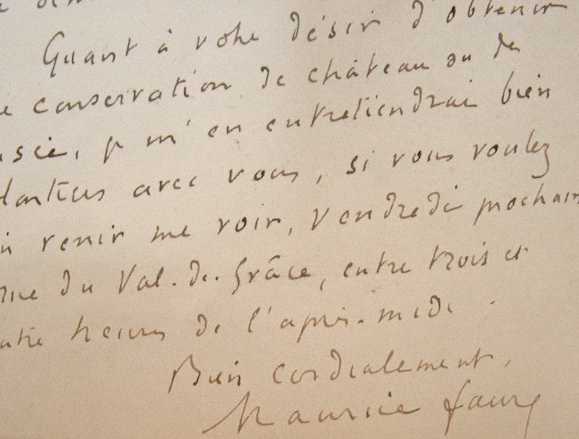 Quant à votre désir d'obtenir
e conservation de château ou de
usée, je m'en entretiendrai bien
olontiers avec vous, si vous voulez
n venir me voir, Vendredi prochain
rue du Val-de-Grâce, entre trois et
uatre heures de l'après-midi.
Bien cordialement,
Maurice Faure